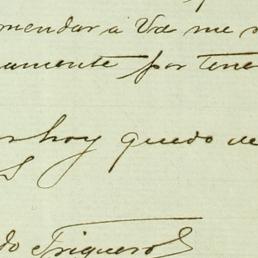 mendar á Vd me
amente por tene
hoy quedo de
S
do Figueroa